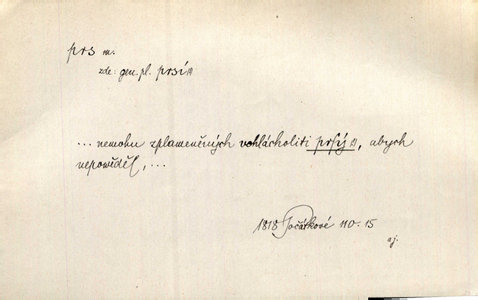 prs m.
zde: gen. pl. prsí
... nemohu zplameněných vohlácholiti prſyj, abych
nepowěděl, ...
1818 Počátkové 110.15
oj.